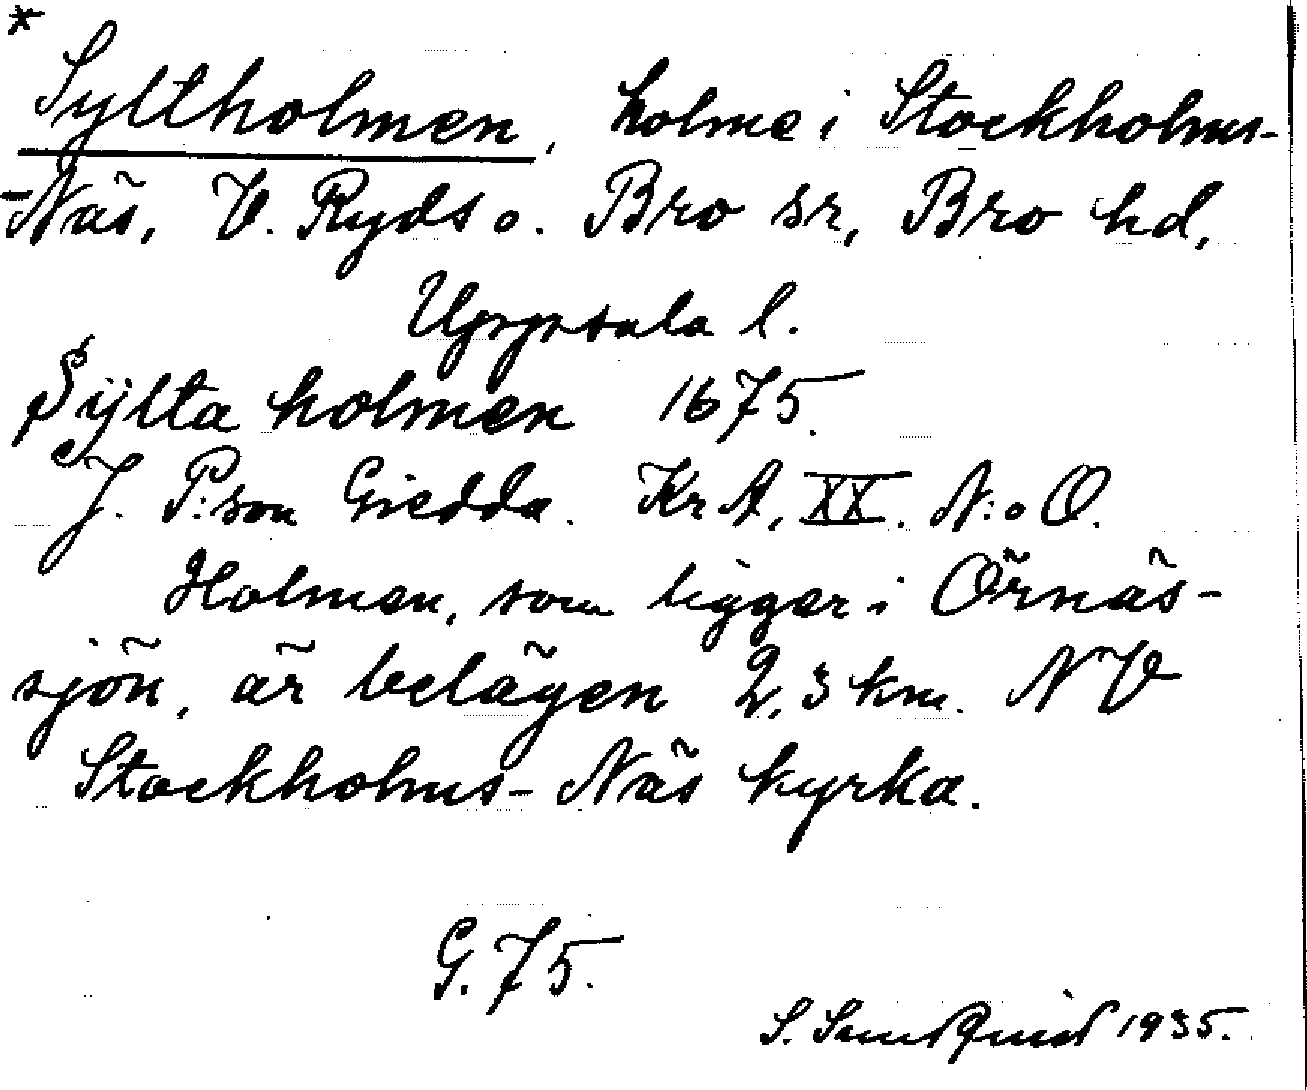 *
Syltholmen, holme i Stockholms-
-Näs, V. Ryds o. Bro sr, Bro hd,
Uppsala l.
Sÿlta holmen 1675.
J. P:son Giedda. KrA, XX. N:o O.
Holmen, som ligger i Örnäs-
sjön, är belägen 2,3 km. NV
Stockholms-Näs kyrka.
G. 75.
S. Sundquist 1935.